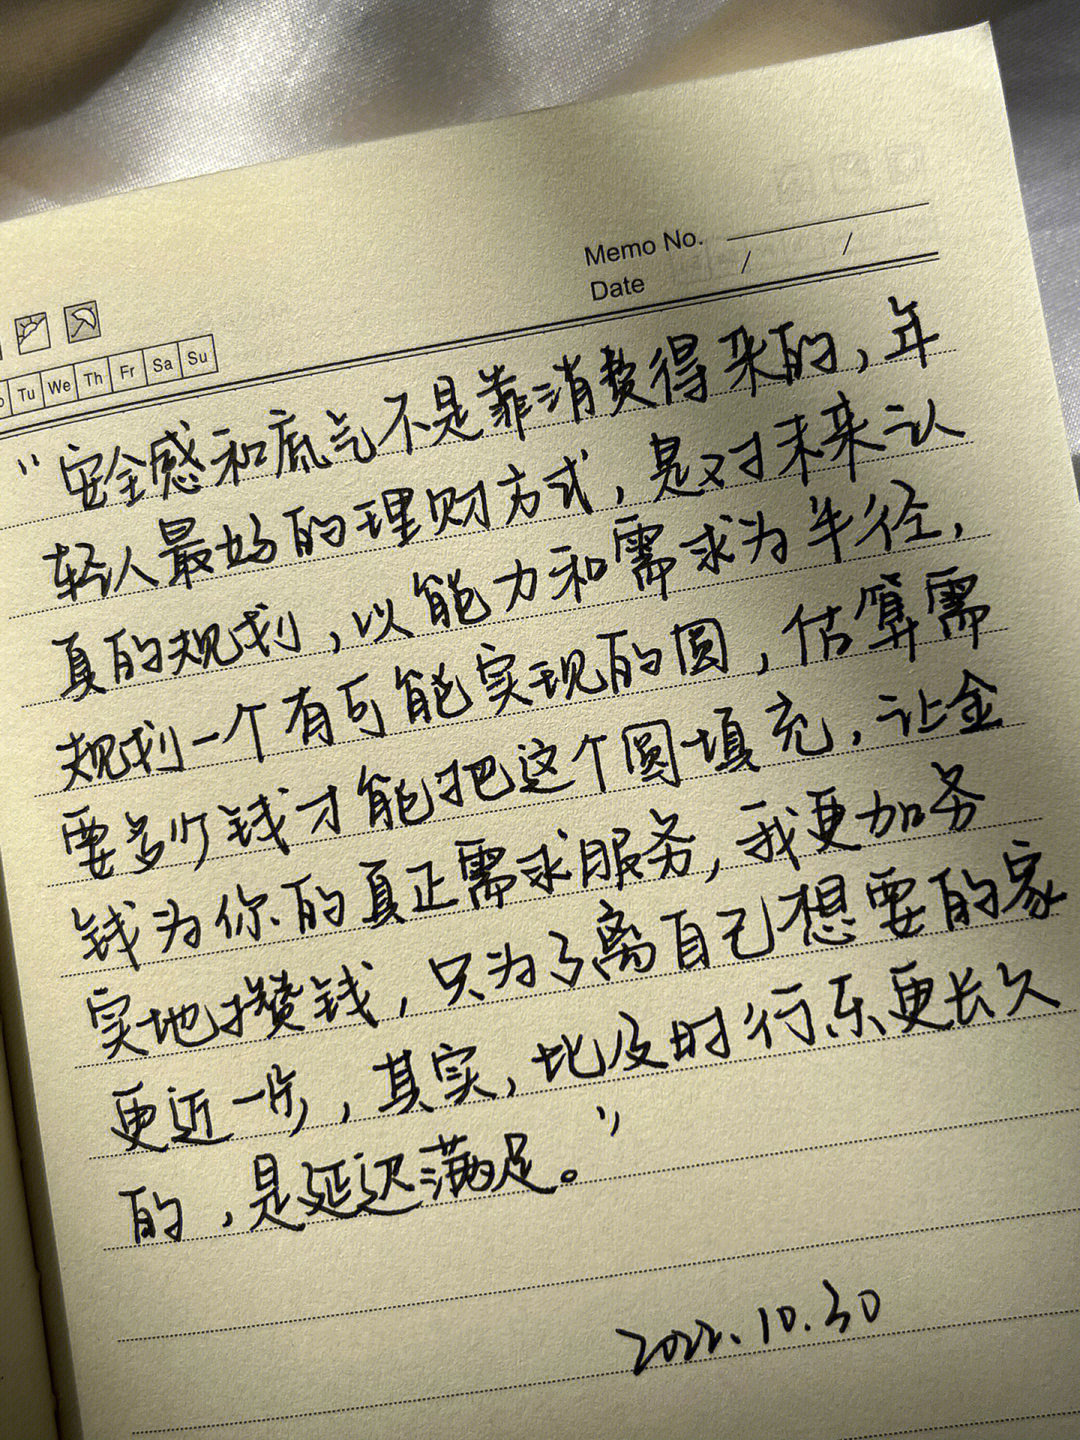 Memo No.
Date / /
Tu We Th Fr Sa Su
“安全感和底气不是靠消费得来的，年
轻人最好的理财方式，是对未来认
真的规划，以能力和需求为半径，
规划一个有可能实现的圆，估算需
要多少钱才能把这个圆填充，让金
钱为你的真正需求服务，我更加务
实地攒钱，只为了离自己想要的家
更近一步，其实，比及时行乐更长久
的，是延迟满足。”
2022.10.30